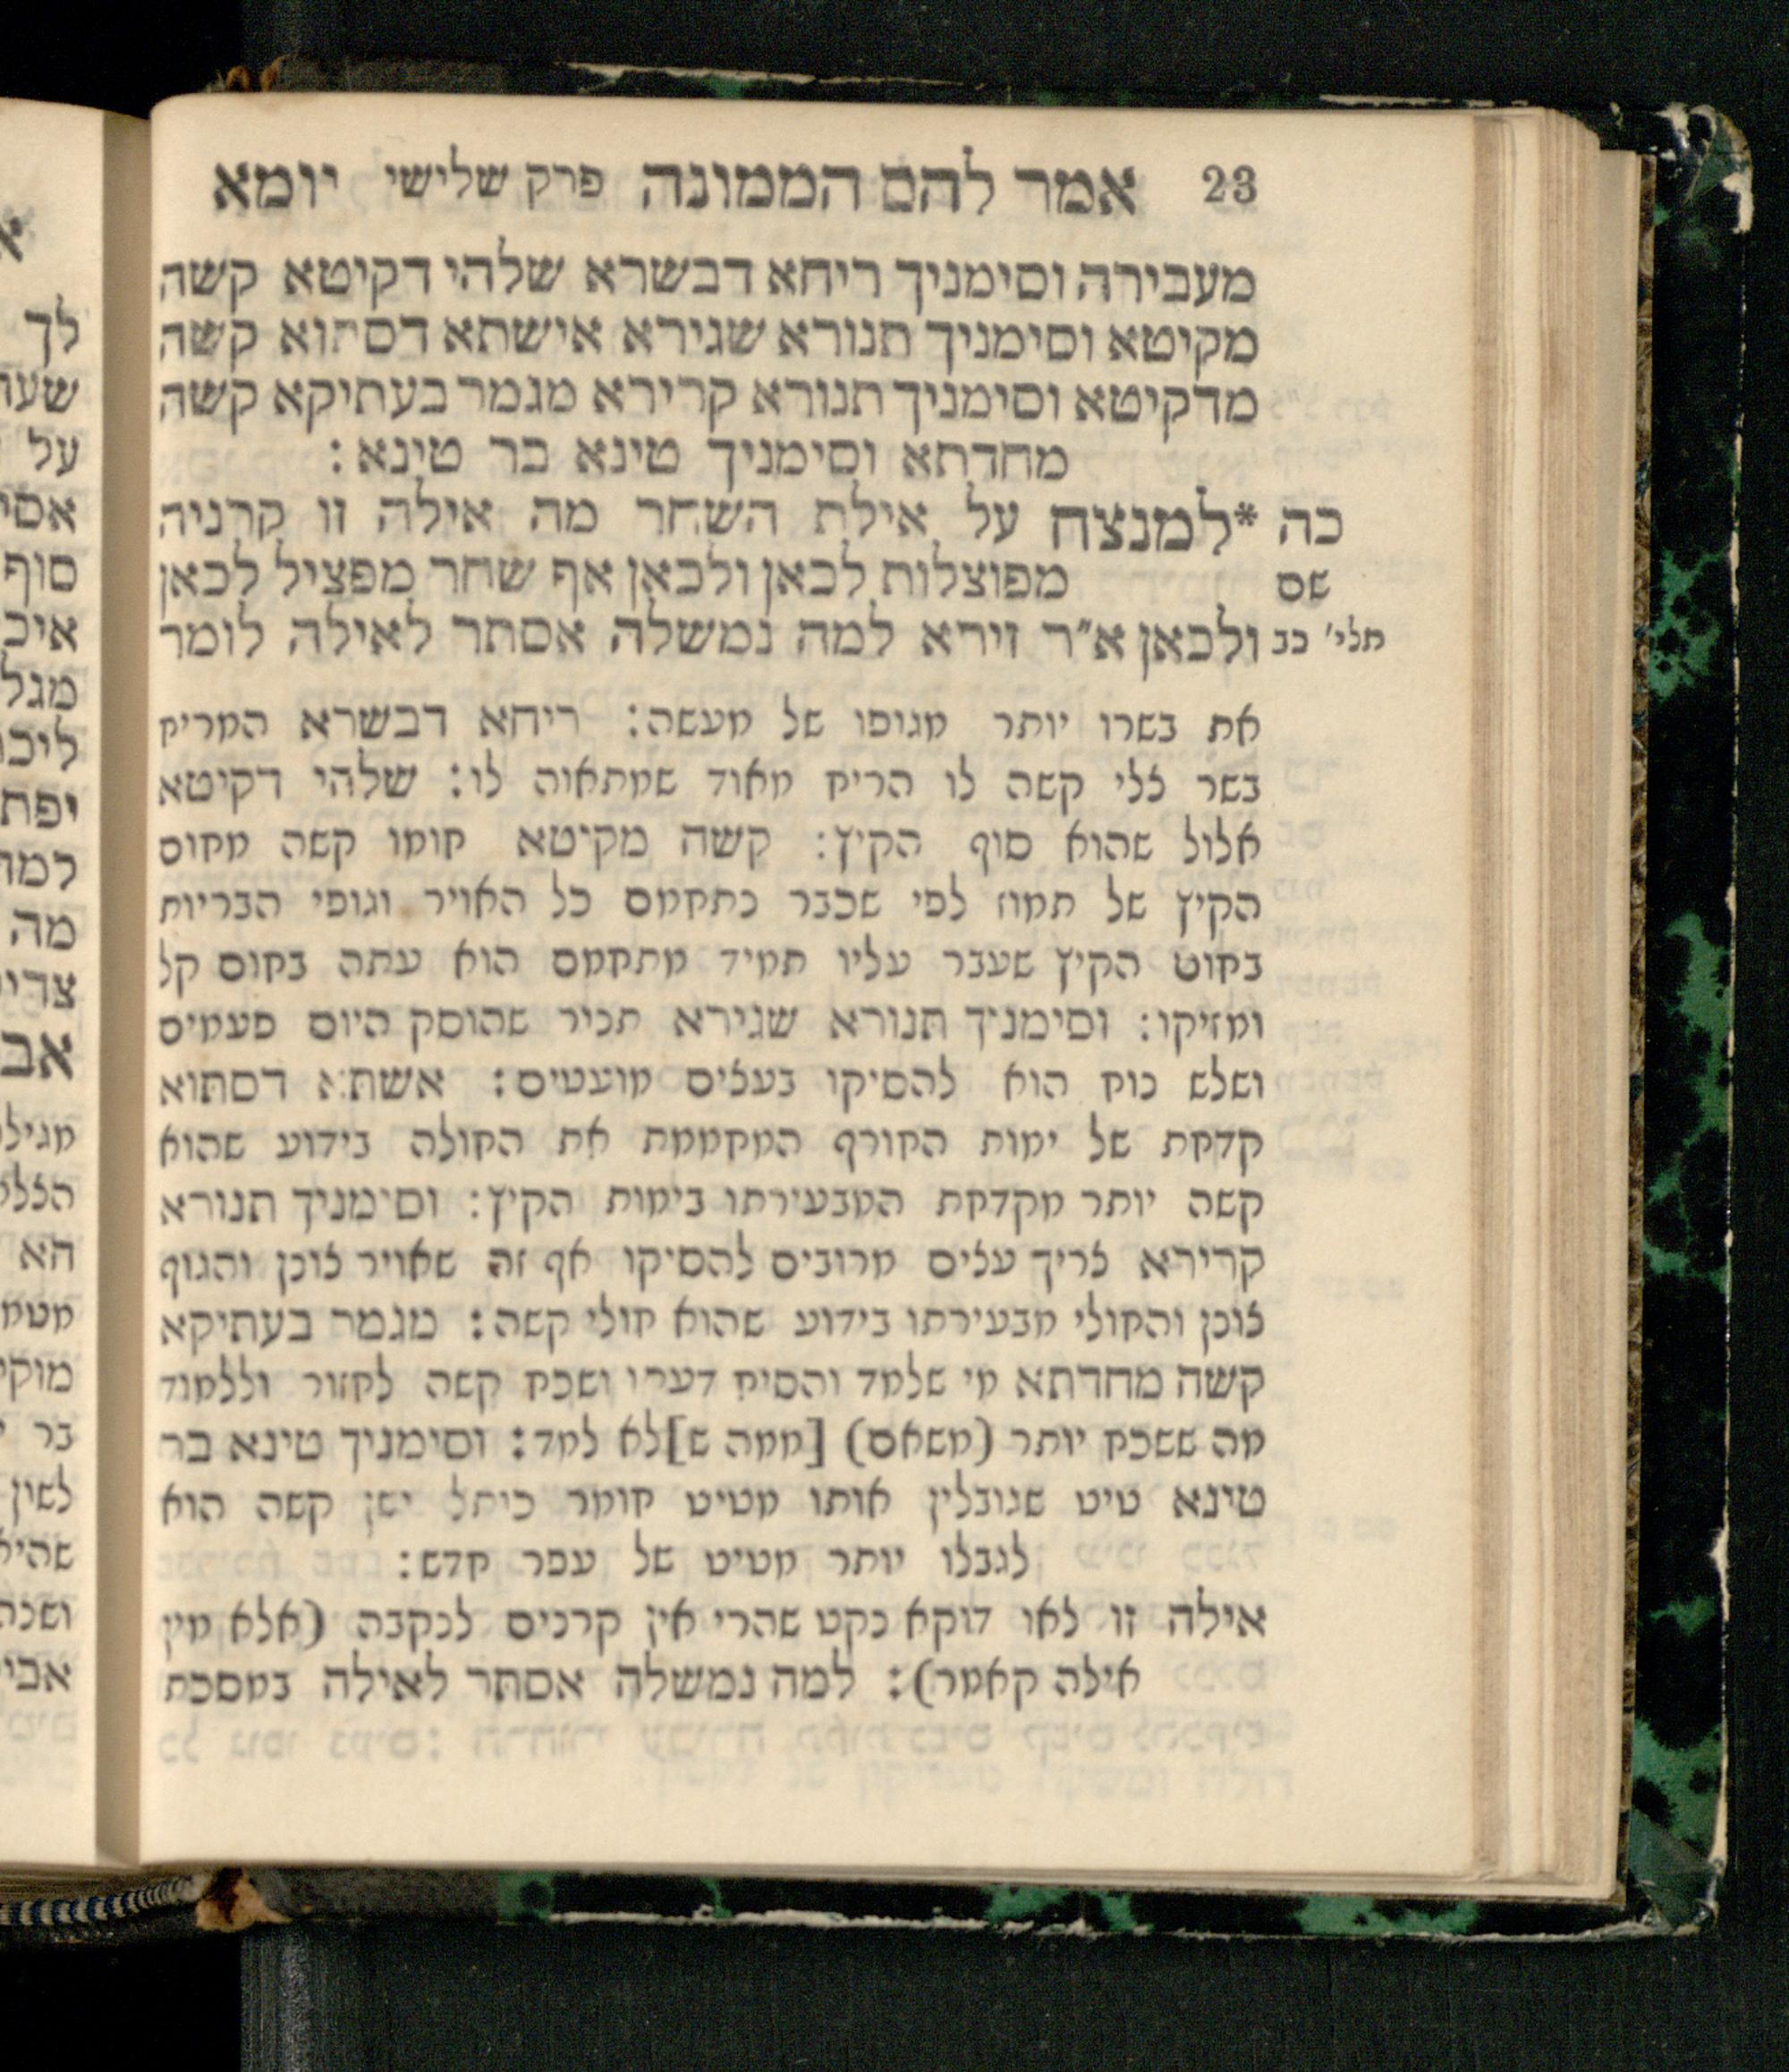 23 אמר להם הממונה פרק שלישי יומא
מעבירה וסימניך ריחא דבשרא שלהי דקיטא קשה
מקיטא וסימניך תנורא שגירא אישתא דסתוא קשה
מדקיטא וסימניך תנורא קרירא מגמר בעתיקא קשה
מחדתא וסימניך טינא בר טינא:
כה *למנצח על אילת השחר מה אילה זו קרניה
שם מפוצלות לכאן ולכאן אף שחר מפציל לכאן
תלי' כב ולכאן א״ר זירא למה נמשלה אסתר לאילה לומר
את בשרו יותר מגופו של מעשה: ריחא דבשרא המריח
בשר צלי קשה לו הריח מאוד שמתאוה לו: שלהי דקיטא
אלול שהוא סוף הקיץ: קשה מקיטא חומו קשה מחום
הקיץ של תמוז לפי שכבר נתחמם כל האויר וגופי הבריות
בחום הקיץ שעבר עליו תמיד מתחמם הוא עתה בחום קל
ומזיקו: וסימניך תנורא שגירא תכיר שהוסק היום פעמים
ושלש נוח הוא להסיקו בעצים מועטים: אשתא דסתוא
קדחת של ימות החורף המחממת את החולה בידוע שהוא
קשה יותר מקדחת המבעירתו בימות הקיץ: וסימניך תנורא
קרירא צריך עצים מרובים להסיקו אף זה שאויר צונן והגוף
צונן והחולי מבעירתו בידוע שהוא חולי קשה: מגמר בעתיקא
קשה מחדתא מי שלמד והסיח דעתו ושכח קשה לחזור וללמוד
מה ששכח יותר (משאם) [ממה ש]לא למד: וסימניך טינא בר
טינא טיט שגובלין אותו מטיט חומר כיתל ישן קשה הוא
לגבלו יותר מטיט של עפר חדש:
אילה זו לאו דוקא נקט שהרי אין קרנים לנקבה (אלא מין
אילה קאמר): למה נמשלה אסתר לאילה במסכת